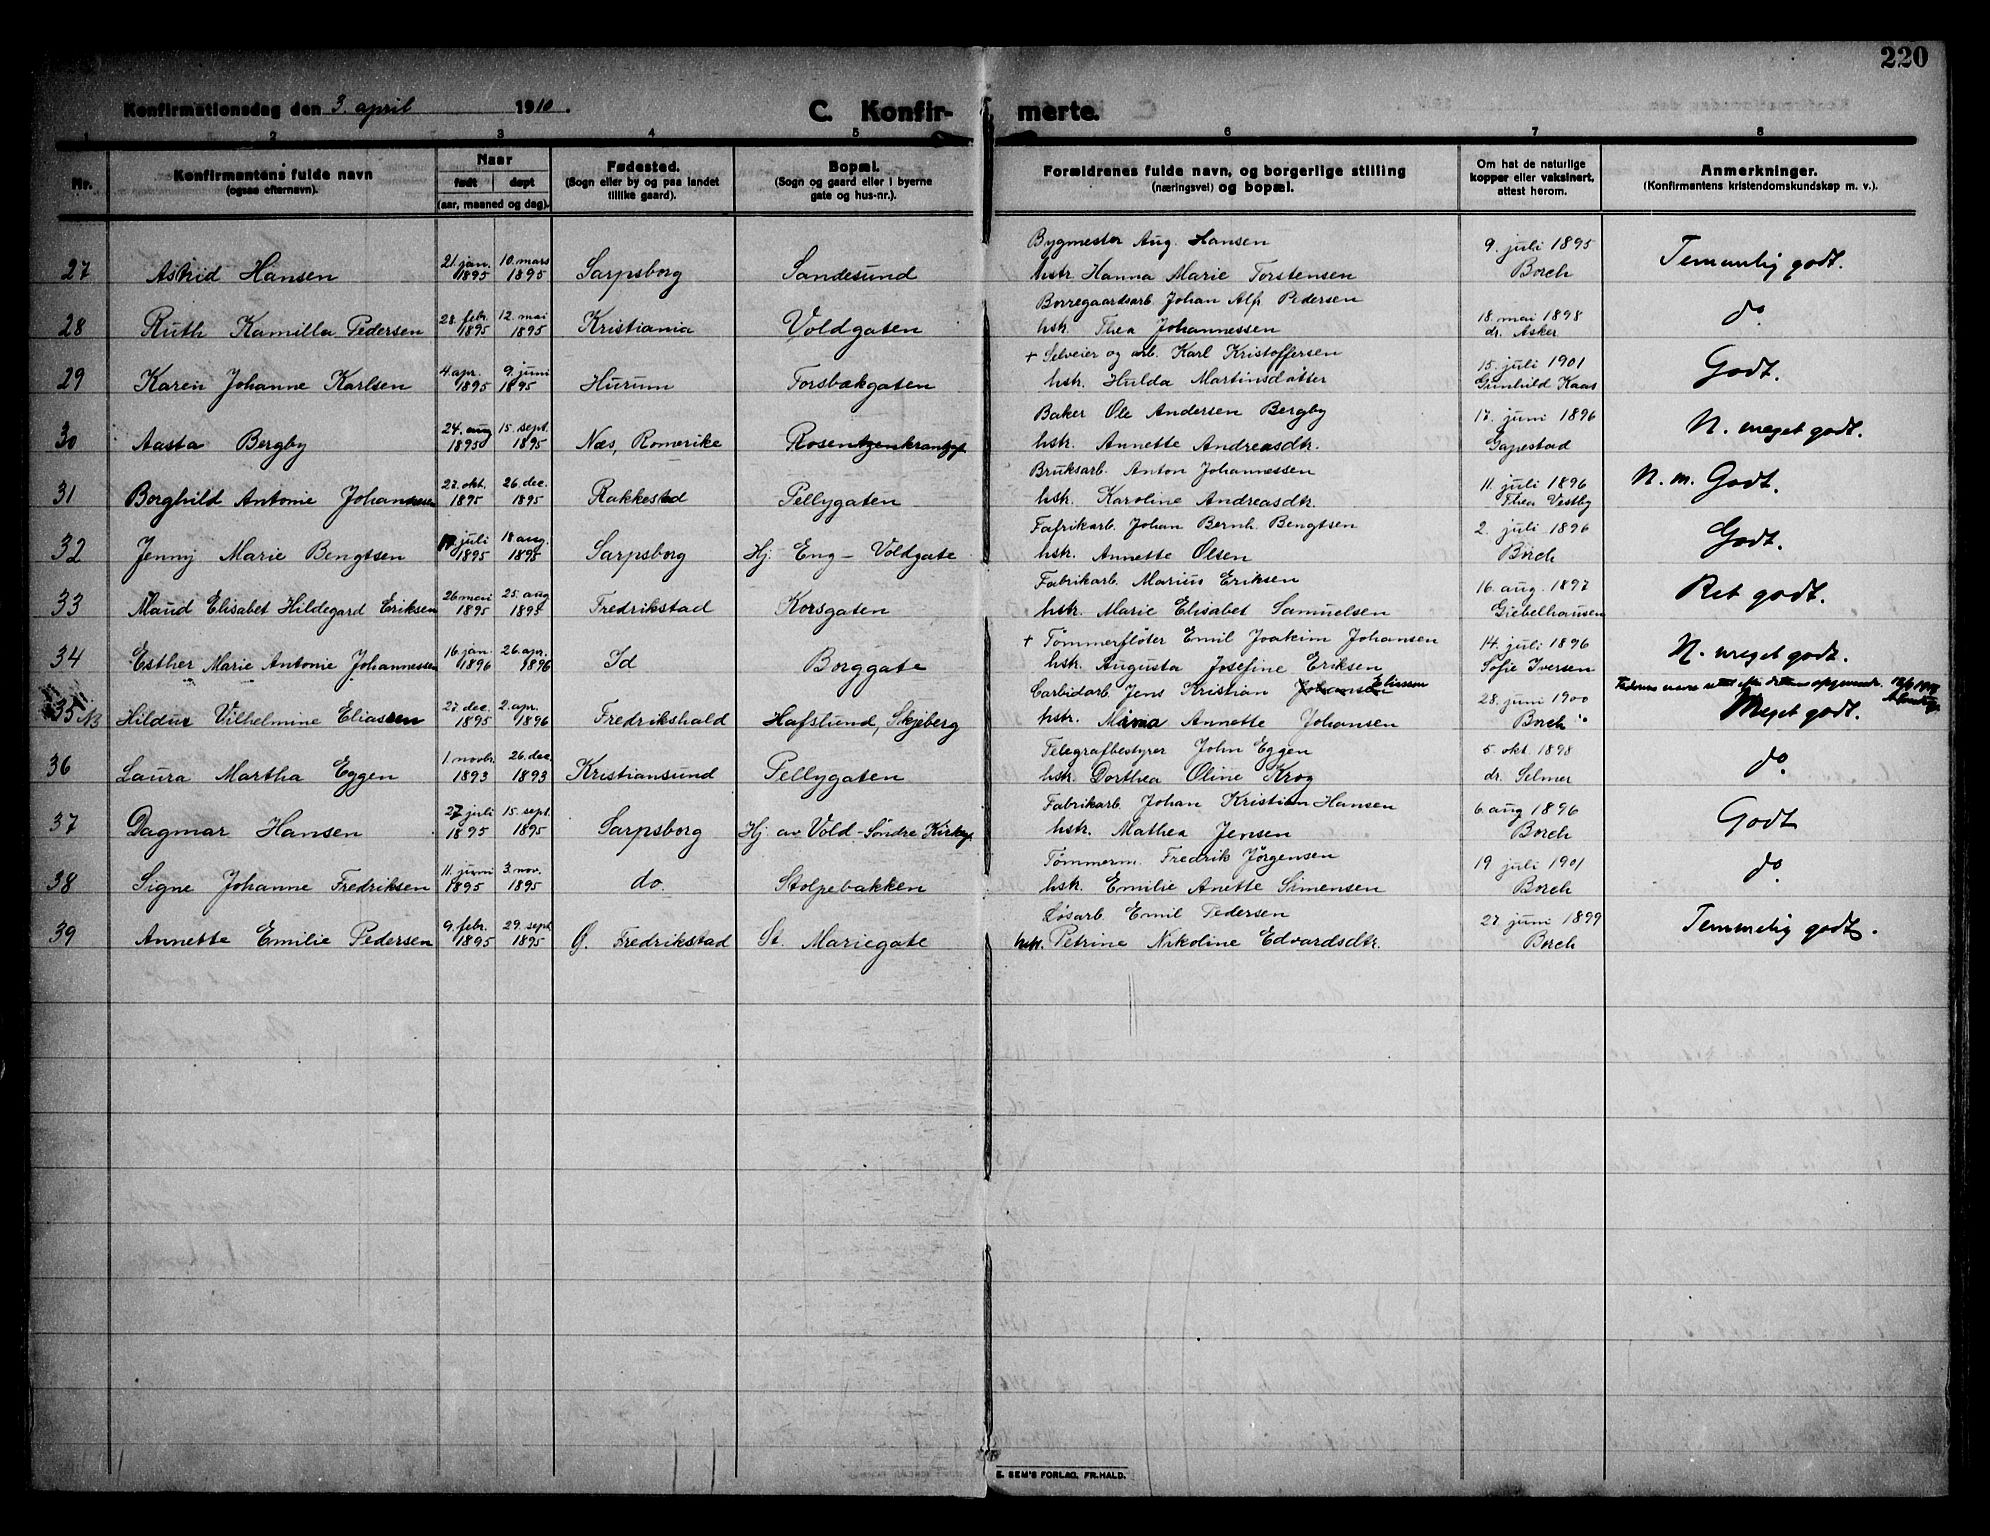 220
Konfirmationsdag den 3. april 1910.
C. Konfir- merte.
1 2 3 4 5 6 7 8
Nr.
Konfirmantens fulde navn
(ogsaa efternavn).
Naar
født døpt
(aar, maaned og dag).
Fødested.
(Sogn eller by og paa landet
tillike gaard).
Bopæl.
(Sogn og gaard eller i byerne
gate og hus-nr.).
Forældrenes fulde navn, og borgerlige stilling
(næringsvei) og bopæl.
Om hat de naturlige
kopper eller vaksinert,
attest herom.
Anmerkninger.
(Konfirmantens kristendomskundskap m. v.).
Bygmester Aug. Hansen
27 Astrid Hansen 21. jan. 1895 10. mars 1895 Sarpsborg Sandesund hstr. Hanna Marie Torstensen 9. juli 1895 Borch Temmelig godt.
Borregaardsarb. Johan Alf. Pedersen
28 Ruth Kamilla Pedersen 28. febr. 1895 12. mai 1895 Kristiania Voldgaten hstr. Thea Johannessen 18. mai 1898 dr. Asker do
+ Selveier og arb. Karl Kristoffersen
29 Karen Johanne Karlsen 4. apr. 1895 9. juni 1895 Hurum Torsbækgaten hstr. Hulda Martinsdatter 15. juli 1901 Gunhild Kaas Godt.
Baker Ole Andersen Bergby
30 Aasta Bergby 24. aug 1895 15. sept. 1895 Næs, Romerike Rosentzenkrantzgt. hstr. Annette Andreasdtr. 17. juni 1896 Gapestad N. meget godt.
Bruksarb. Anton Johannessen
31 Borghild Antonie Johansen 27. okt. 1895 26. dec. 1895 Rakkestad Pellygaten hstr. Karoline Andreasdtr. 11. juli 1896 Thea Vestby N. m. Godt.
Fafrikarb. Johan Bernh. Bengtsen
32 Jenny Marie Bengtsen juli 1895 18 aug. 1895 Sarpsborg Hj. Eng - Voldgate hstr. Annette Olsen 2. juli 1896 Borch Godt.
Fabrikarb. Marius Eriksen
33 Maud Elisabet Hildegard Eriksen 26 mai 1895 25. aug 1895 Fredrikstad Korsgaten hstr. Marie Elisabet Samuelsen 16. aug. 1897 Giebelhausen Ret godt.
+ Tømmerfløter Emil Joakim Johansen
34 Esther Marie Antonie Johannessen 16. jan. 1896 26. apr. 1896 Id Borggate hstr. Augusta Josefine Eriksen 14. juli 1896 Sofie Iversen N. meget godt.
Carbidarb. Jens Kristian Johansen Eliassen
35 NB Hildur Vilhelmine Eliassen 27. dec. 1895 2. apr. 1896 Fredrikshald Hafslund, Skjeberg hstr. Mina Annette Johansen 28. juni 1900 Borch Meget godt.
Telegrafbestyrer John Eggen
36 Laura Martha Eggen 1. novbr. 1893 26. dec. 1893 Kristiansund Pellygaten hstr. Dorthea Oline Krog 5. okt. 1898 dr. Selmer do
Fabrikarb. Johan Kristian Hansen
37 Dagmar Hansen 27 juli 1895 15. sept. 1895 Sarpsborg Hj. av Vold-Søndre Kirkegt. hstr. Mathea Jensen 6 aug 1896 Borch Godt
Tømmerm. Fredrik Jørgensen
38 Signe Johanne Fredriksen 11. juni 1895 3. nov. 1895 do. Stolpebakken hstr. Emilie Anette Simensen 19 juli 1901 Borch do
Løsarb. Emil Pedersen
39 Annette Emilie Pedersen 9. febr. 1895 29. sept 1895 Ø. Fredrikstad St. Mariegate hstr. Petrine Nikoline Edvardsdtr. 27 juni 1899 Borch Temmelig godt.
E. SEM'S FORLAG, FR.HALD.